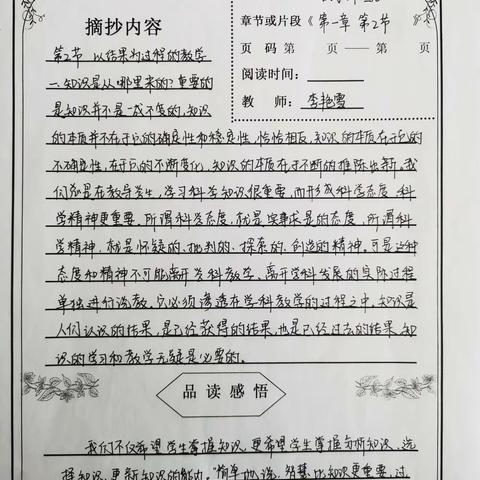 摘抄内容
章节或片段《第一章 第2节》
页 码 第 页 —— 第 页
阅读时间：
教 师：李艳雪
第2节 以结果为过程的教学
一、知识是从哪里来的？重要的
是知识并不是一成不变的，知识
的本质并不在于它的确定性和稳定性，恰恰相反，知识的本质在于它的
不确定性，在于它的不断变化，知识的本质在于不断的推陈出新。我
们总是在教导学生，学习科学知识很重要，而形成科学态度、科
学精神更重要。所谓科学态度，就是实事求是的态度，所谓科
学精神，就是怀疑的、批判的、探索的、创造的精神。可是这种
态度和精神不可能离开学科教学、离开学科发展的实际过程
单独进行说教，它必须渗透在学科教学的过程之中。知识是
人们认识的结果，是已经获得的结果，也是已经过去的结果，知
识的学习和教学无疑是必要的。
品读感悟
我们不仅希望学生掌握知识，更希望学生掌握分析知识、选
择知识、更新知识的能力。"简单地说，智慧比知识更重要，过